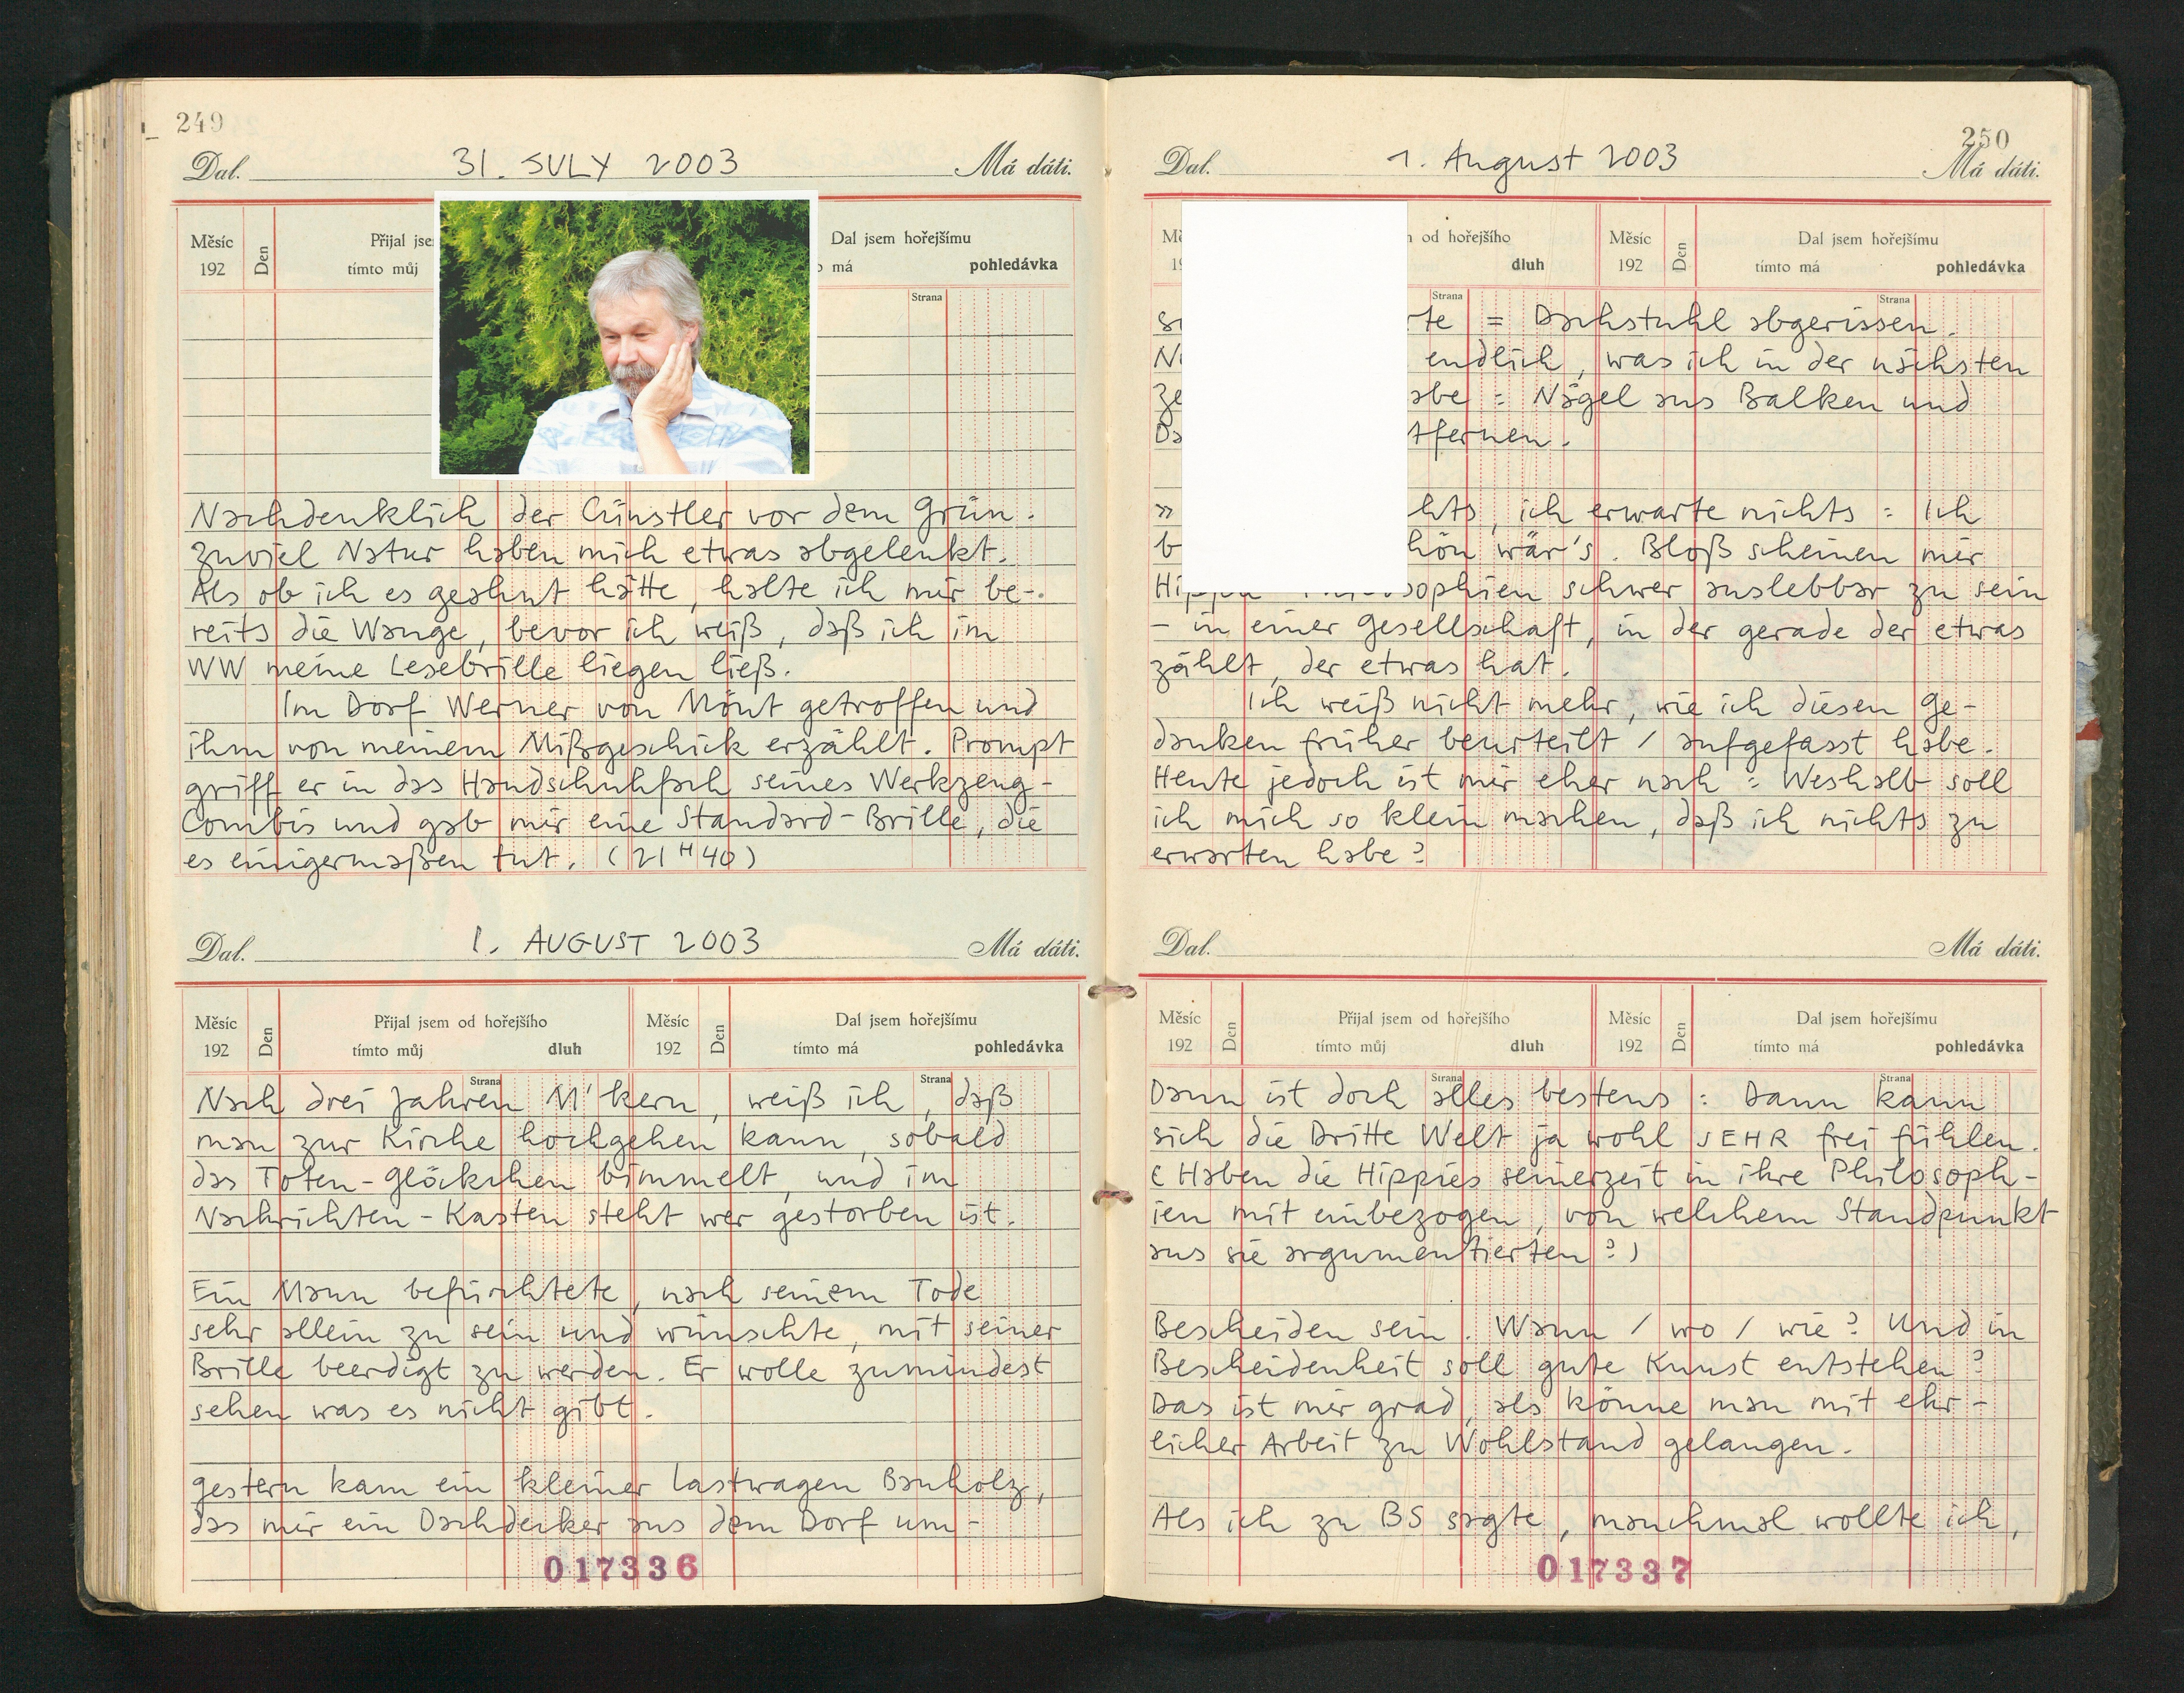 249
Dal. 31. JULY 2003 Má dáti.
Měsíc Den Přijal jse Dal jsem hořejšímu
192 tímto můj má pohledávka
Strana
Nachdenklich der Cünstler vor dem Grün.
Zuviel Natur haben mich etwas abgelenkt.
Als ob ich es geahnt hätte, halte ich mir be-
reits die Wange, bevor ich weiß, daß ich im
WW meine Lesebrille liegen ließ.
Im Dorf Werner von Mont getroffen und
ihm von meinem Mißgeschick erzählt. Prompt
griff er in das Handschuhfach seines Werkzeug-
Combis und gab mir eine Standard-Brille, die
es einigermaßen tut. (21 H 40)
Dal. 1. AUGUST 2003 Má dáti.
Měsíc Den Přijal jsem od hořejšího Měsíc Den Dal jsem hořejšímu
192 tímto můj dluh 192 tímto má pohledávka
Strana Strana
Nach drei Jahren M'kern, weiß ich, daß
man zur Kirche hochgehen kann, sobald
das Toten-Glöckchen bimmelt, und im
Nachrichten-Kasten steht wer gestorben ist.
Ein Mann befürchtete, nach seinem Tode
sehr allein zu sein und wünschte, mit seiner
Brille beerdigt zu werden. Er wolle zumindest
sehen was es nicht gibt.
gestern kam ein kleiner Lastwagen Bauholz,
das mir ein Dachdecker aus dem Dorf um-
017336
250
Dal. 1. August 2003 Má dáti.
od hořejšího Měsíc Den Dal jsem hořejšímu
dluh 192 tímto má pohledávka
Strana Strana
rte = Dachstuhl abgerissen.
endlich, was ich in der nächsten
abe = Nägel aus Balken und
tfernen.
» hts, ich erwarte nichts = Ich
b hön wär's. Bloß scheinen mir
sophien schwer auslebbar zu sein
- in einer Gesellschaft, in der gerade der etwas
zählt, der etwas hat.
Ich weiß nicht mehr, wie ich diesen Ge-
danken früher beurteilt / aufgefasst habe.
Heute jedoch ist mir eher nach = Weshalb soll
ich mich so klein machen, daß ich nichts zu
erwarten habe?
Dal. Má dáti.
Měsíc Den Přijal jsem od hořejšího Měsíc Den Dal jsem hořejšímu
192 tímto můj dluh 192 tímto má pohledávka
Strana Strana
Dann ist doch alles bestens : Dann kann
sich die Dritte Welt ja wohl SEHR frei fühlen.
(Haben die Hippies seinerzeit in ihre Philosoph-
ien mit einbezogen, von welchem Standpunkt
aus sie argumentierten?)
Bescheiden sein. Wann / wo / wie? Und in
Bescheidenheit soll gute Kunst entstehen?
Das ist mir grad, als könne man mit ehr-
licher Arbeit zu Wohlstand gelangen.
Als ich zu BS sagte, manchmal wollte ich,
017337